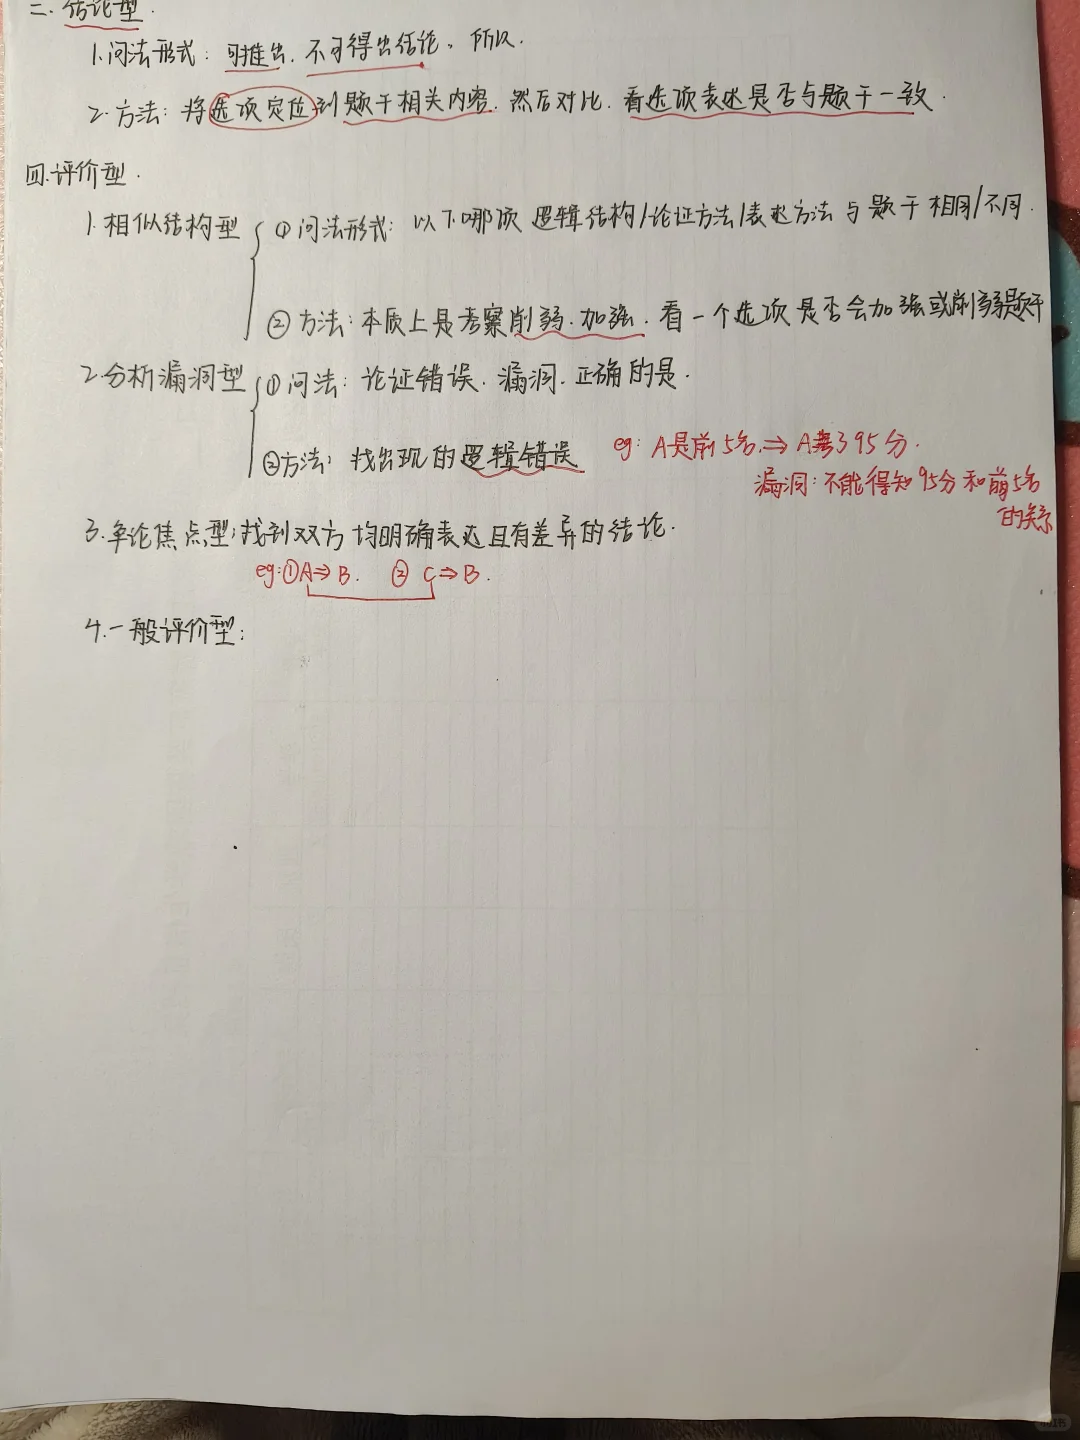 二. 结论型.
1.问法形式: 可推出. 不可得出结论. 所以.
2.方法: 将选项定位到题干相关内容. 然后对比. 看选项表述是否与题干一致.
四.评价型.
1.相似结构型 ①问法形式: 以下哪项 逻辑结构/论证方法/表达方法 与 题干 相同/不同.
②方法: 本质上是考察削弱.加强. 看一个选项是否会加强或削弱题干
2.分析漏洞型 ①问法: 论证错误. 漏洞. 正确的是.
②方法: 找出现的逻辑错误 eg: A是前5名 ⇒ A考了95分.
漏洞: 不能得知95分和前5名
的关系
3.争论焦点型: 找到双方均明确表达且有差异的结论.
eg: ①A⇒B. ② C⇒B.
4.一般评价型: